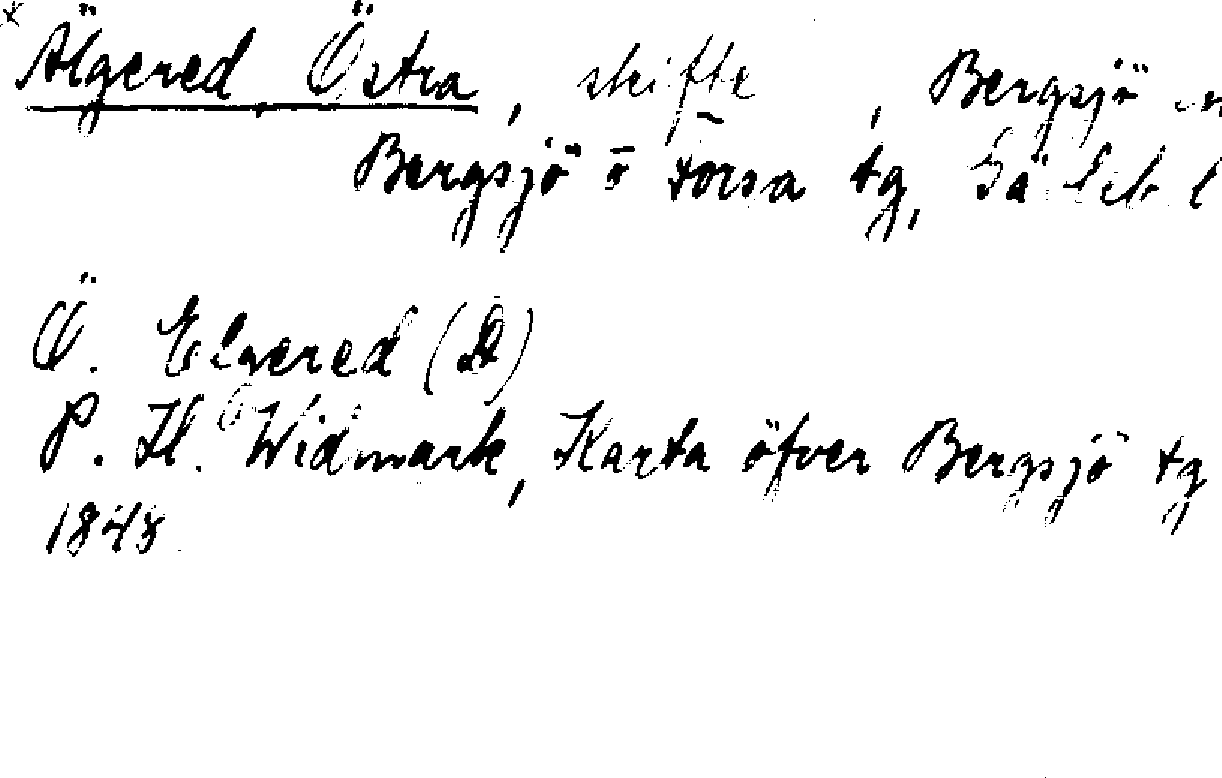 Älgered, Östra, skifte, Bergsjö sn
Bergsjö o Forsa tg, Gävleb l
Ö. Elgered (D)
P. H. Widmark, Karta öfver Bergsjö tg
1848